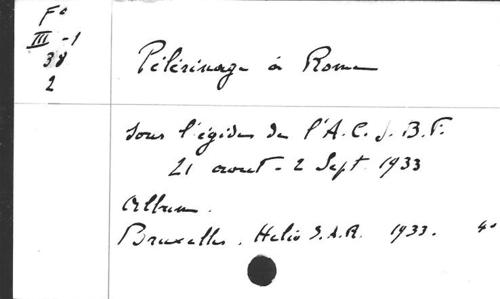 F°
III -1
38
2
Pèlerinage à Rome
sous l'égide de l'A.C.J.B.F.
21 aout - 2 Sept. 1933
Album.
Bruxelles. Helio S.A.R. 1933. 4°